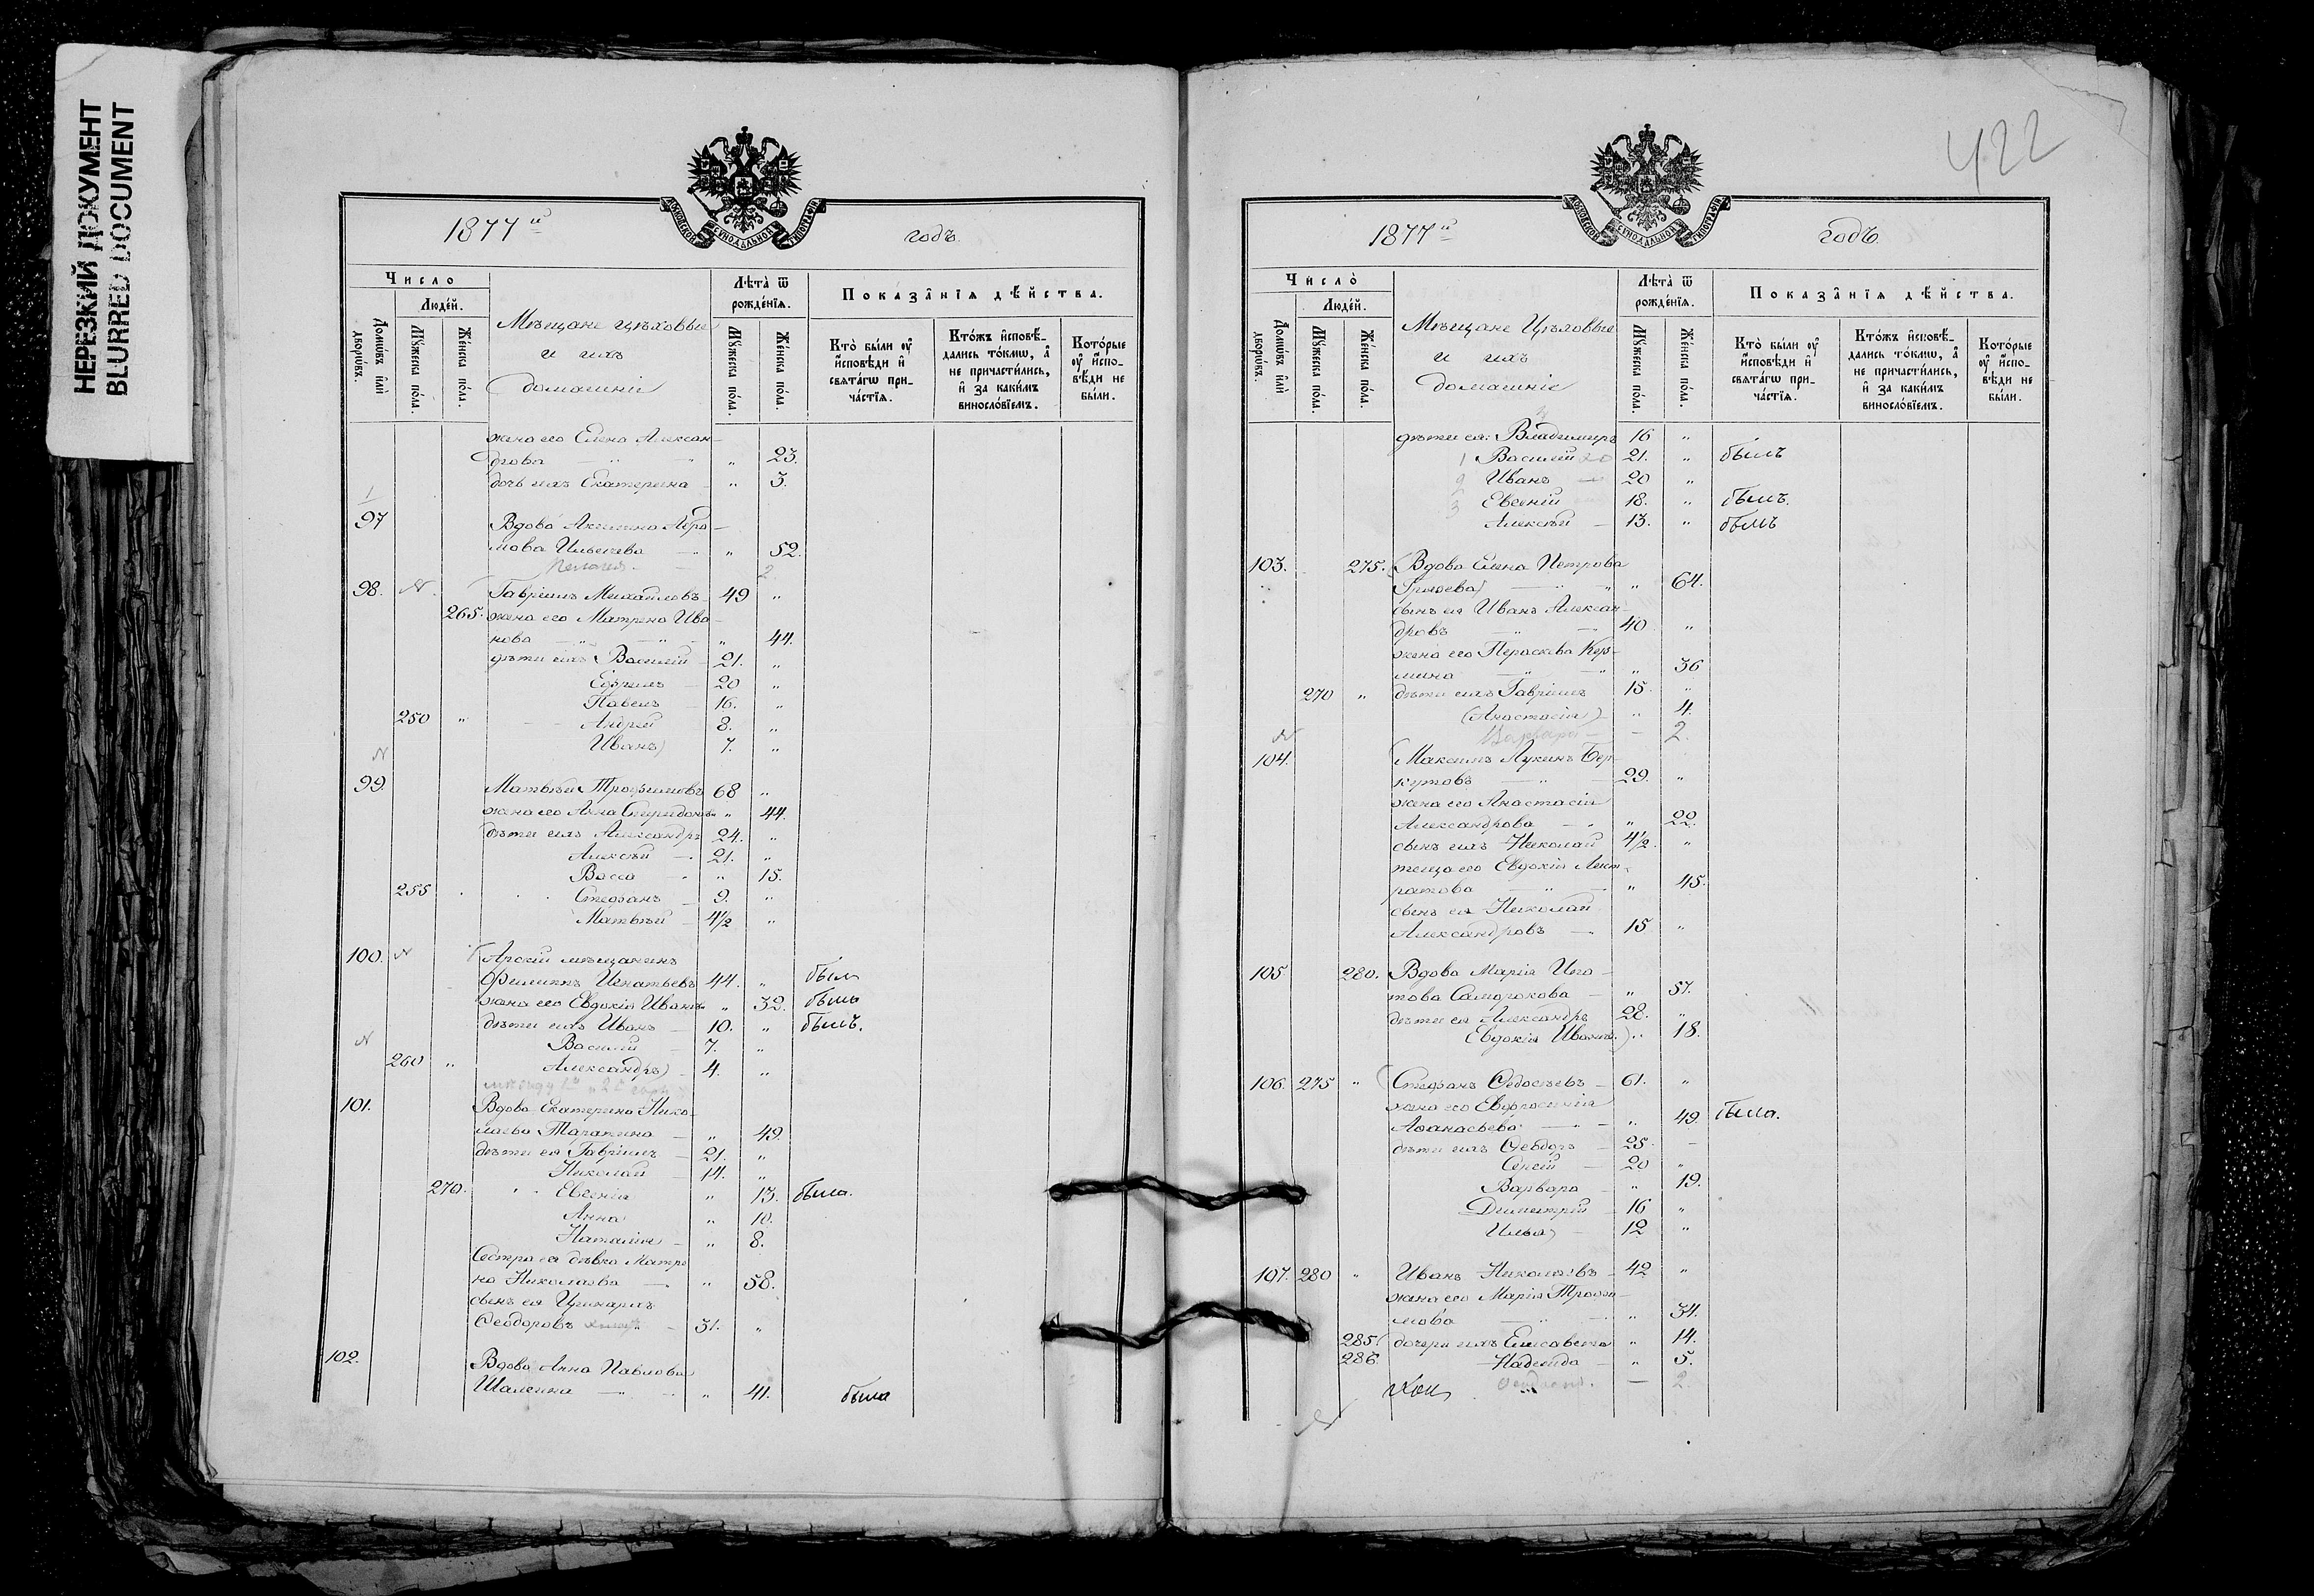 НЕРЕЗКИЙ ДОКУМЕНТ
BLURRED DOCUMENT
МОСКОВСКОЙ СѴНОДАЛЬНОЙ ТИПОГРАФІИ
1877й годъ.
Число
Людéй.
Домѡвъ илѝ дворѡвъ.
Мꙋжеска пóла.
Жéнска пóла.
Мѣщане цѣховые
и ихъ
домашніе
Лѣтà ѿ рождéнїѧ.
Мꙋжеска пóла.
Жéнска пóла.
Показáнїѧ дѣйства.
Ктò бы́ли ᲂу҆ и҆сповѣди и҆ свѧтáгѡ причáстїѧ.
Ктóжъ и҆сповѣдались тóкмѡ, а҆ не причасти́лись, и҆ за каки́мъ винослóвїемъ.
Котóрые ᲂу҆ и҆сповѣди не бы́ли.
жена его Елена Алексан-
дрова " 23.
дочь ихъ Екатерина " 3.
97 Вдова Акилина Абра-
мова " 52.
Пелагея 2
98. N Гавріилъ Михайловъ 49 "
265. жена его Матрена Ива-
нова " 44.
дѣти ихъ Василій 21. "
Ефремъ 20 "
Павелъ 16. "
250 " Андрей 8. "
Иванъ 7. "
N
99. Матвѣй Трофимовъ 68 "
жена его Анна Спиридонова " 44.
дѣти ихъ Александръ 24. "
Алексѣй 21. "
Васса " 15.
255 Стефанъ 9. "
Матвѣй 4½ "
100. N Арскій мѣщанинъ
Филиппъ Игнатьевъ 44. " былъ
жена его Евдокія Иванова " 32. была
дѣти ихъ Иванъ 10. " былъ.
N Василій 7. "
260 " Александръ 4. "
101. Вдова Екатерина Нико-
лаева " 49.
дѣти ея Гавріилъ 21. "
Николай 14. "
270. Евгенія " 13. была.
Анна " 10.
Наталія " 8.
Сестра ея дѣвка Матре-
на Николаева " 58.
сынъ ея
Ѳеодоровъ 31. "
102. Вдова Анна Павлова
" 41. была
422
1877й годъ.
Числò
Людéй.
Домѡвъ илѝ дворѡвъ.
Мꙋжеска пóла.
Жéнска пóла.
Мѣщане Цѣховые
и ихъ
домашніе
Лѣтà ѿ рождéнїѧ.
Мꙋжеска пóла.
Жéнска пóла.
Показáнїѧ дѣйства.
Ктò бы́ли ᲂу҆ и҆сповѣди и҆ свѧтáгѡ причáстїѧ.
Ктóжъ и҆сповѣдались тóкмѡ, а҆ не причасти́лись, и҆ за каки́мъ винослóвїемъ.
Котóрые ᲂу҆ и҆сповѣди не бы́ли.
дѣти ея: Владимиръ 16 "
1 Василій 20 21. " былъ
2 Иванъ 20 "
3 Евгеній 18. " былъ.
Алексѣй 13. " былъ
103. 275. Вдова Елена Петрова
" 64.
сынъ ея Иванъ Алексан-
дровъ 40 "
жена его Параскева Кор-
" 36
270 " дѣти ихъ Гавріилъ 15. "
(Анастасія) " 4.
N Варвара 2.
104. Максимъ Лукинъ Бер-
кутовъ 29. "
жена его Анастасія
Александрова " 22.
сынъ ихъ Николай 4½. "
теща его Евдокія
" 45.
сынъ ея Николай
Александровъ 15 "
105. 280. Вдова Марія Игна-
това Саморокова " 57.
дѣти ея Александръ 28. "
Евдокія Иванова " 18.
106. 275 " Стефанъ Ѳедосѣевъ 61. "
жена его Евфросинія
Аѳанасьева " 49. была.
дѣти ихъ Ѳеодоръ 25. -
Сергій 20 "
Варвара " 19.
Димитрій 16 "
Илья 12 "
107. 280 " Иванъ Николаевъ 42 "
жена его Марія Трофи-
мова " 34.
285. дочери ихъ Елисавета " 14.
286. Надежда " 5.
2.